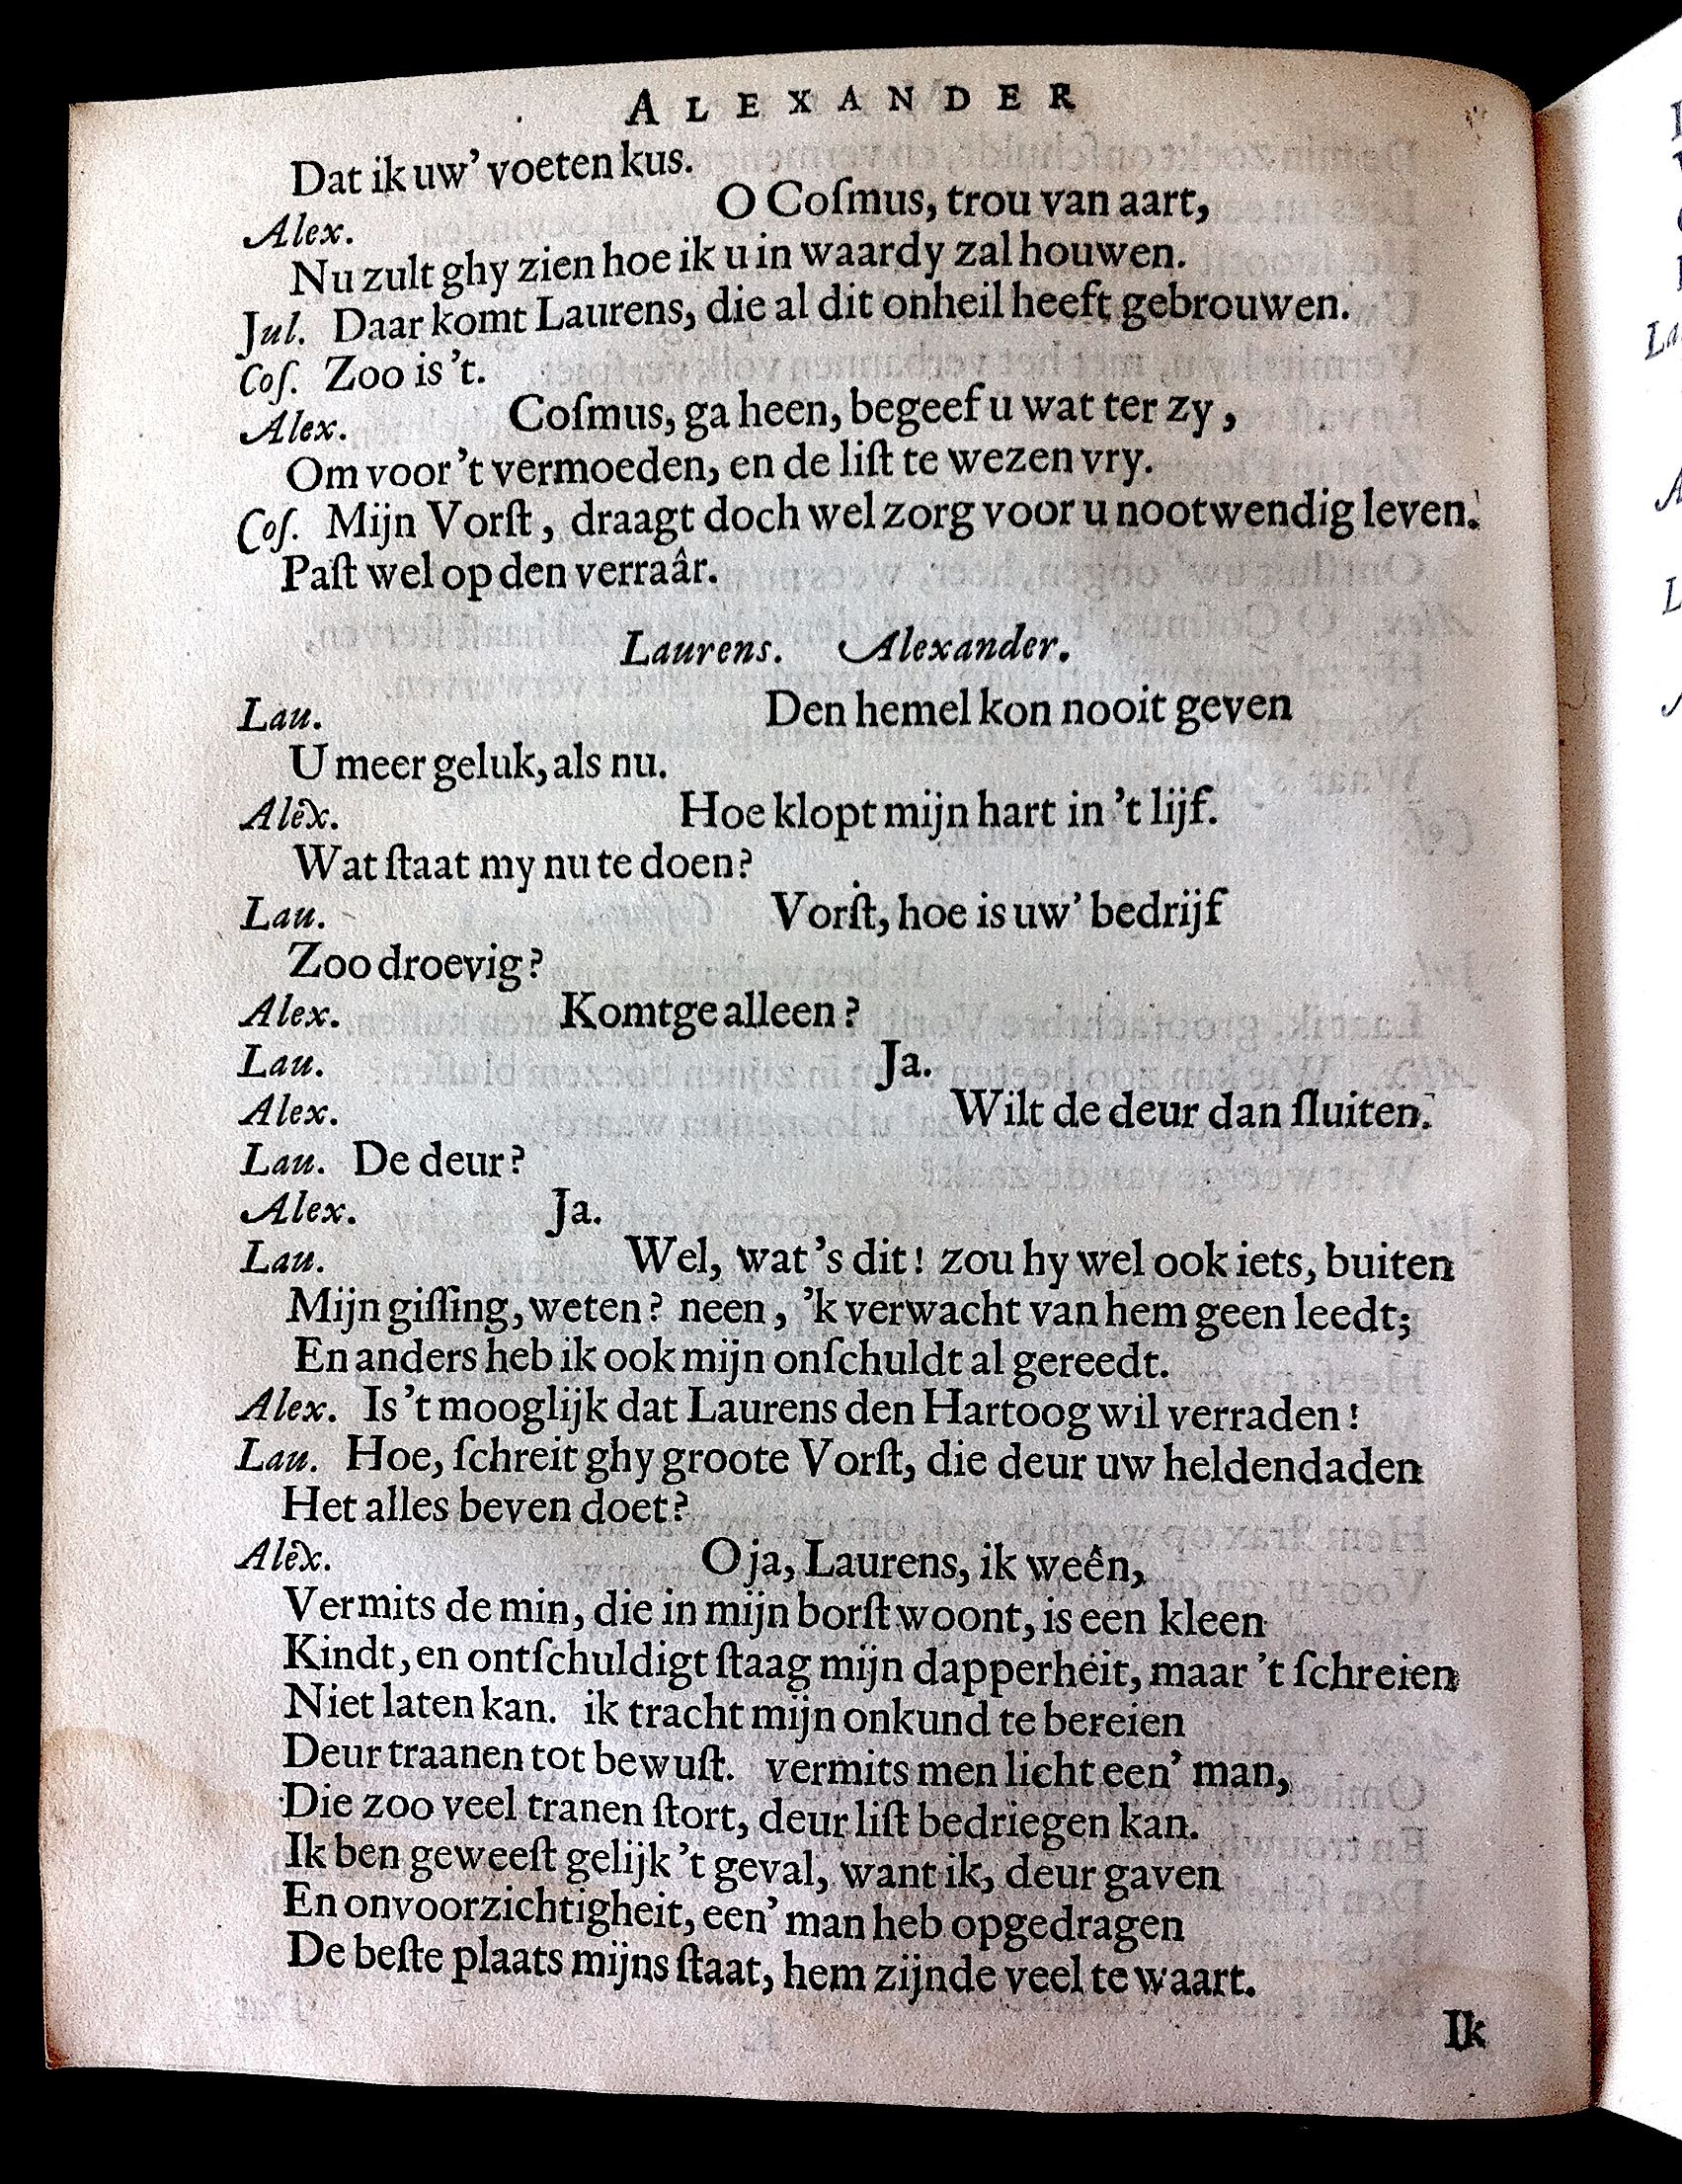 ALEXANDER
Dat ik uw' voeten kus.
Alex. O Coſmus, trou van aart,
Nu zult ghy zien hoe ik u in waardy zal houwen.
Jul. Daar komt Laurens, die al dit onheil heeft gebrouwen.
Coſ. Zoo is 't.
Alex. Coſmus, ga heen, begeef u wat ter zy,
Om voor 't vermoeden, en de liſt te wezen vry.
Coſ. Mijn Vorſt, draagt doch wel zorg voor u nootwendig leven.
Paſt wel op den verraâr.
Laurens. Alexander.
Lau. Den hemel kon nooit geven
U meer geluk, als nu.
Alex. Hoe klopt mijn hart in 't lijf.
Wat ſtaat my nu te doen?
Lau. Vorſt, hoe is uw' bedrijf
Zoo droevig?
Alex. Komtge alleen?
Lau. Ja.
Alex. Wilt de deur dan ſluiten.
Lau. De deur?
Alex. Ja.
Lau. Wel, wat 's dit! zou hy wel ook iets, buiten
Mijn giſſing, weten? neen, 'k verwacht van hem geen leedt;
En anders heb ik ook mijn onſchuldt al gereedt.
Alex. Is 't mooglijk dat Laurens den Hartoog wil verraden!
Lau. Hoe, ſchreit ghy groote Vorſt, die deur uw heldendaden
Het alles beven doet?
Alex. O ja, Laurens, ik weên,
Vermits de min, die in mijn borſt woont, is een kleen
Kindt, en ontſchuldigt ſtaag mijn dapperheit, maar 't ſchreien
Niet laten kan. ik tracht mijn onkund te bereien
Deur traanen tot bewuſt. vermits men licht een' man,
Die zoo veel tranen ſtort, deur liſt bedriegen kan.
Ik ben geweeſt gelijk 't geval, want ik, deur gaven
En onvoorzichtigheit, een' man heb opgedragen
De beſte plaats mijns ſtaat, hem zijnde veel te waart.
Ik